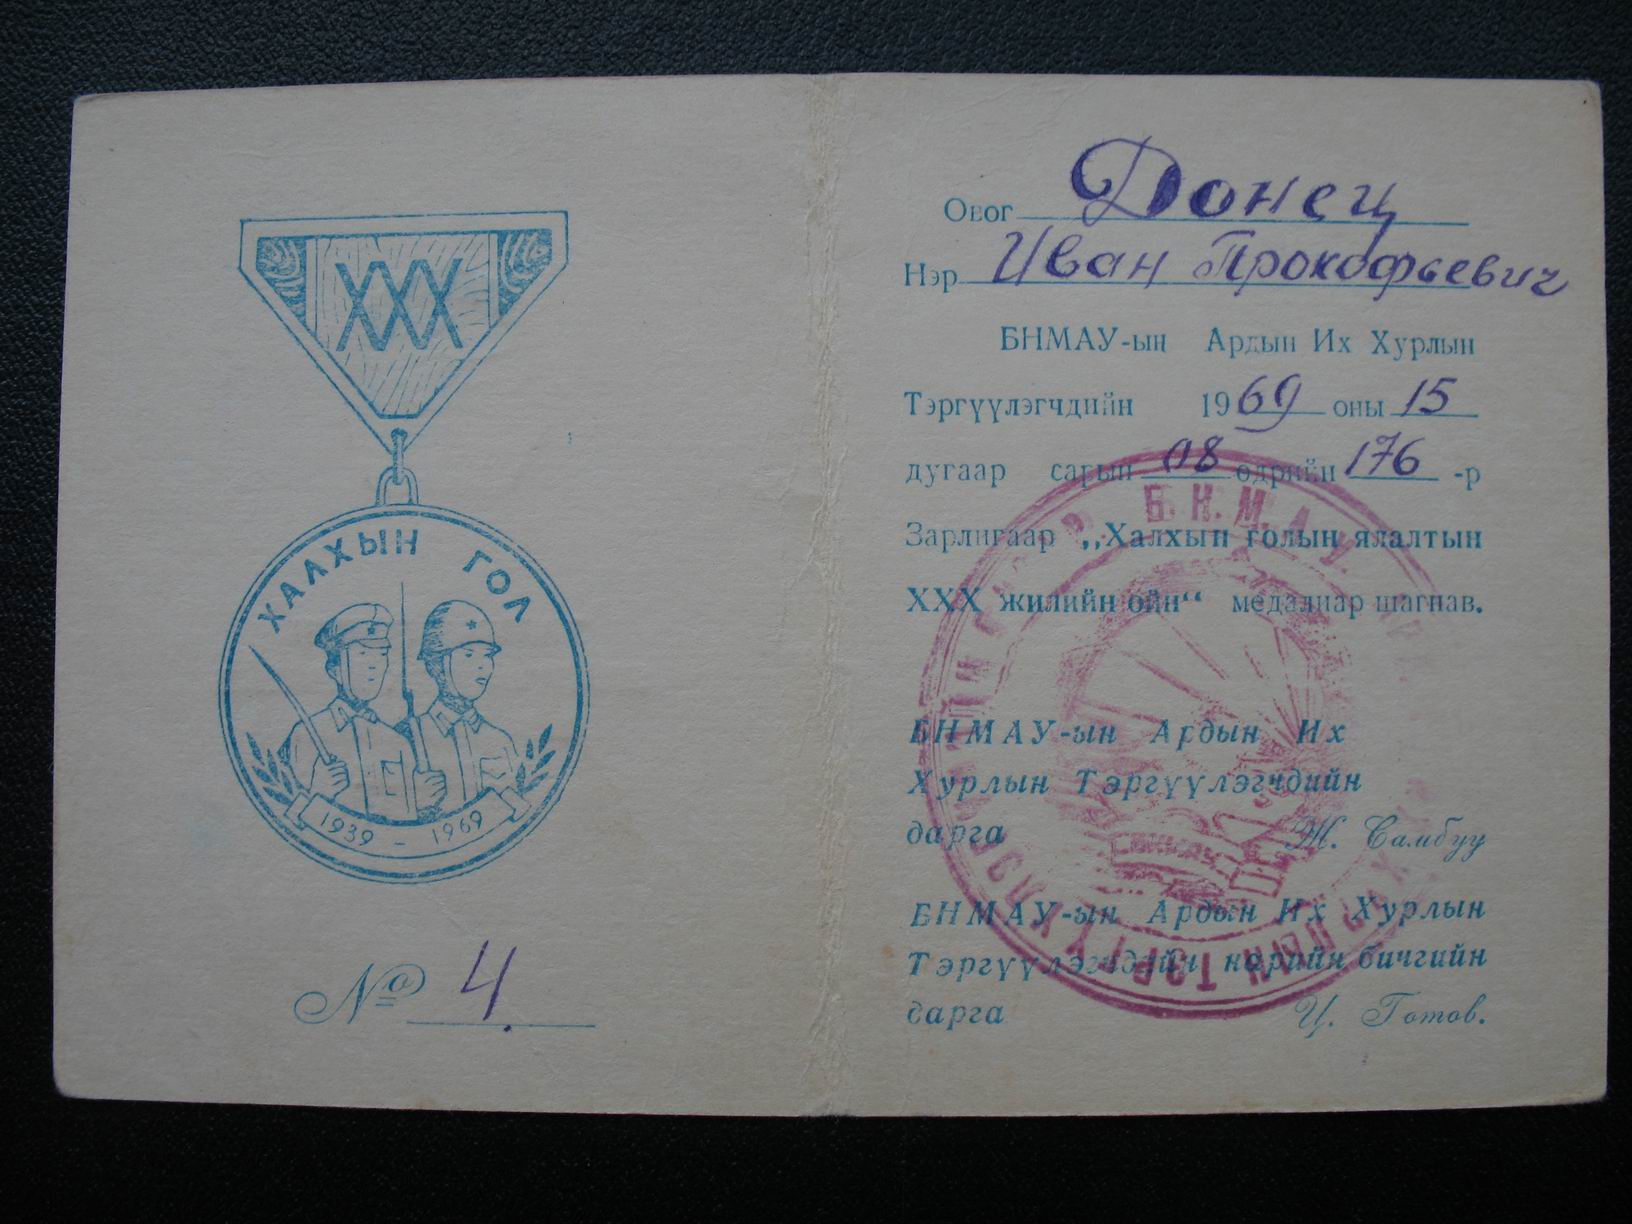 XXX
ХАЛХЫН ГОЛ
1939 - 1969
№ 4
Овог Донец
Нэр Иван Прокофьевич
БНМАУ-ын Ардын Их Хурлын
Тэргүүлэгчдийн 1969 оны 15
дугаар сарын 08 өдрийн 176 -р
Зарлигаар „Халхын голын ялалтын
XXX жилийн ойн“ медалиар шагнав.
БНМАУ-ын Ардын Их
Хурлын Тэргүүлэгчдийн
дарга Ж. Самбуу
БНМАУ-ын Ардын Их Хурлын
Тэргүүлэгчдийн нарийн бичгийн
дарга Ц. Готов.
Б.Н.М.А.У.